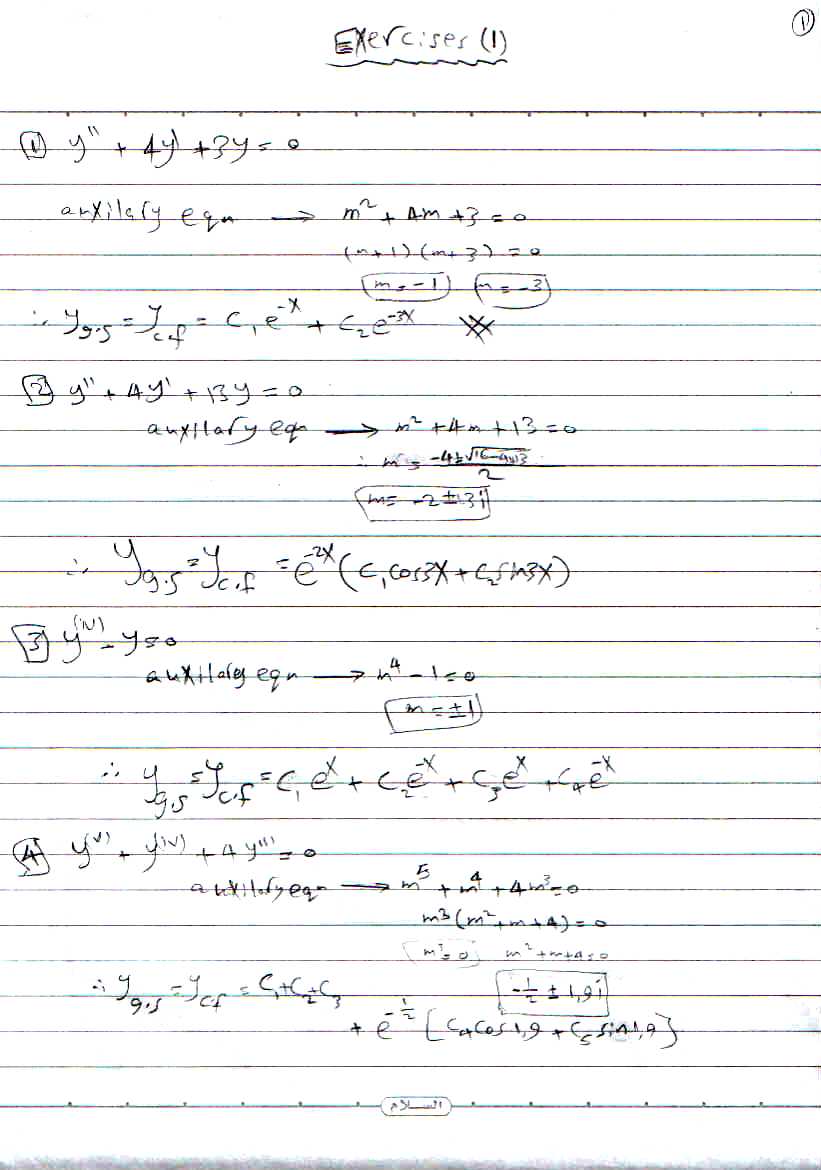 ①
Exercises (1)
① y'' + 4y' + 3y = 0
auxilary eqn → m² + 4m + 3 = 0
(m+1)(m+3) = 0
m = -1 m = -3
∴ y_g.s = y_c.f = C₁e^-x + C₂e^-3x
② y'' + 4y' + 13y = 0
auxilary eqn → m² + 4m + 13 = 0
∴ m = (-4±√(16-4×13))/2
m = -2 ± 3i
∴ y_g.s = y_c.f = e^-2x (C₁cos3x + C₂sin3x)
③ y^(IV) - y = 0
auxilary eqn → m⁴ - 1 = 0
m = ±1
∴ y_g.s = y_c.f = C₁e^x + C₂e^-x + C₃e^x + C₄e^-x
④ y^(V) + y^(IV) + 4y''' = 0
auxilary eqn → m⁵ + m⁴ + 4m³ = 0
m³(m² + m + 4) = 0
m³ = 0 m² + m + 4 = 0
-1/2 ± 1,9i
∴ y_g.s = y_cf = C₁+C₂+C₃
+ e^-1/2 [C₄cos1,9 + C₅sin1,9]
السلام